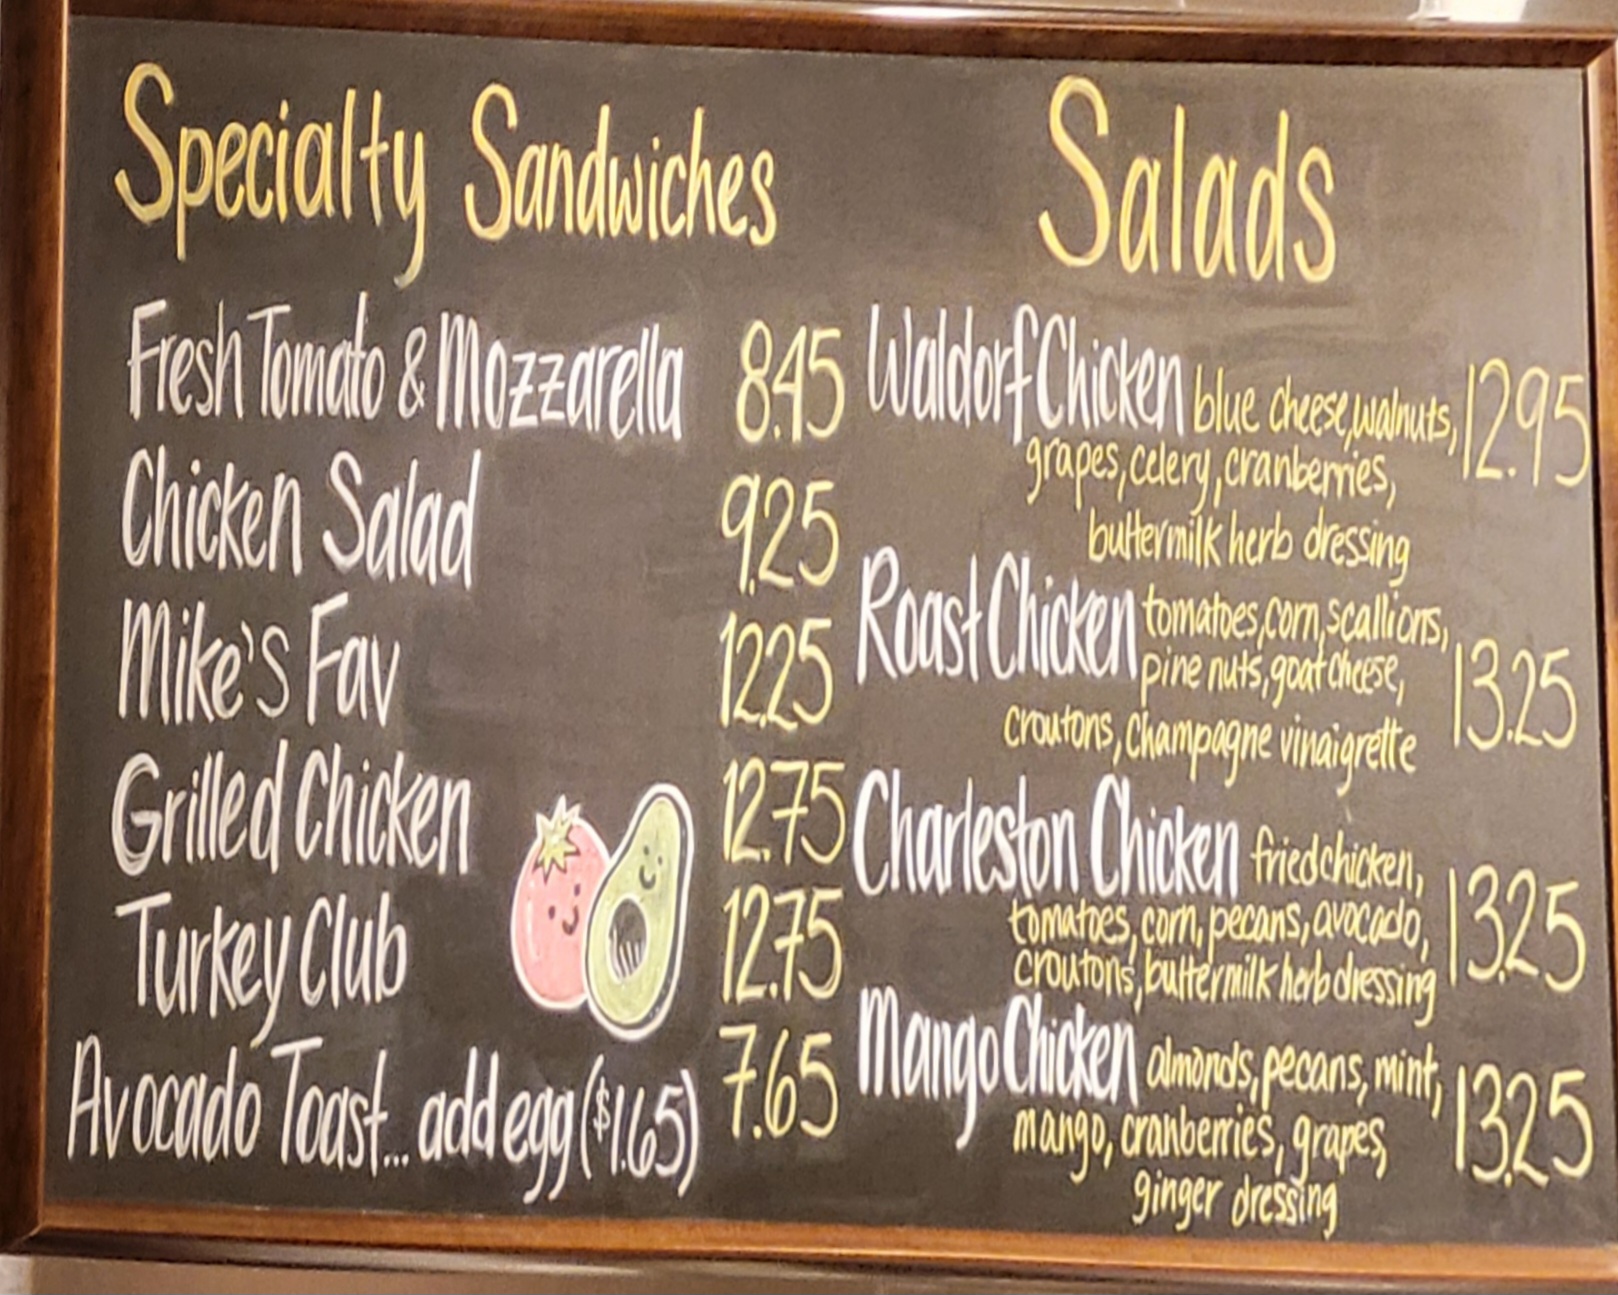 Specialty Sandwiches
Fresh Tomato & Mozzarella 8.45
Chicken Salad 9.25
Mike's Fav 12.25
Grilled Chicken 12.75
Turkey Club 12.75
Avocado Toast... add egg ($1.65) 7.65
Salads
Waldorf Chicken blue cheese, walnuts, 12.95
grapes, celery, cranberries,
buttermilk herb dressing
Roast Chicken tomatoes, corn, scallions,
pine nuts, goat cheese, 13.25
croutons, champagne vinaigrette
Charleston Chicken fried chicken,
tomatoes, corn, pecans, avocado, 13.25
croutons, buttermilk herb dressing
Mango Chicken almonds, pecans, mint,
mango, cranberries, grapes, 13.25
ginger dressing